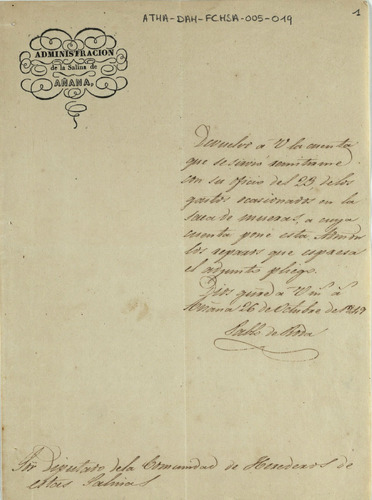 ATHA-DAH-FCHSA-005-019
1
ADMINISTRACION
de la Salina de
AÑANA,
Devuelvo á V la cuenta
que se sirvió remitirme
con su oficio del 23 de los
gastos ocasionados en la
saca de mueras, a cuya
cuenta pone esta Admon
los reparos que espresa
el adjunto pliego.
Dios gue á V m.s a.s
Añana 26 de Octubre de
Pablo de Roda
Sor Diputado de la Comunidad de Herederos de
estas Salinas